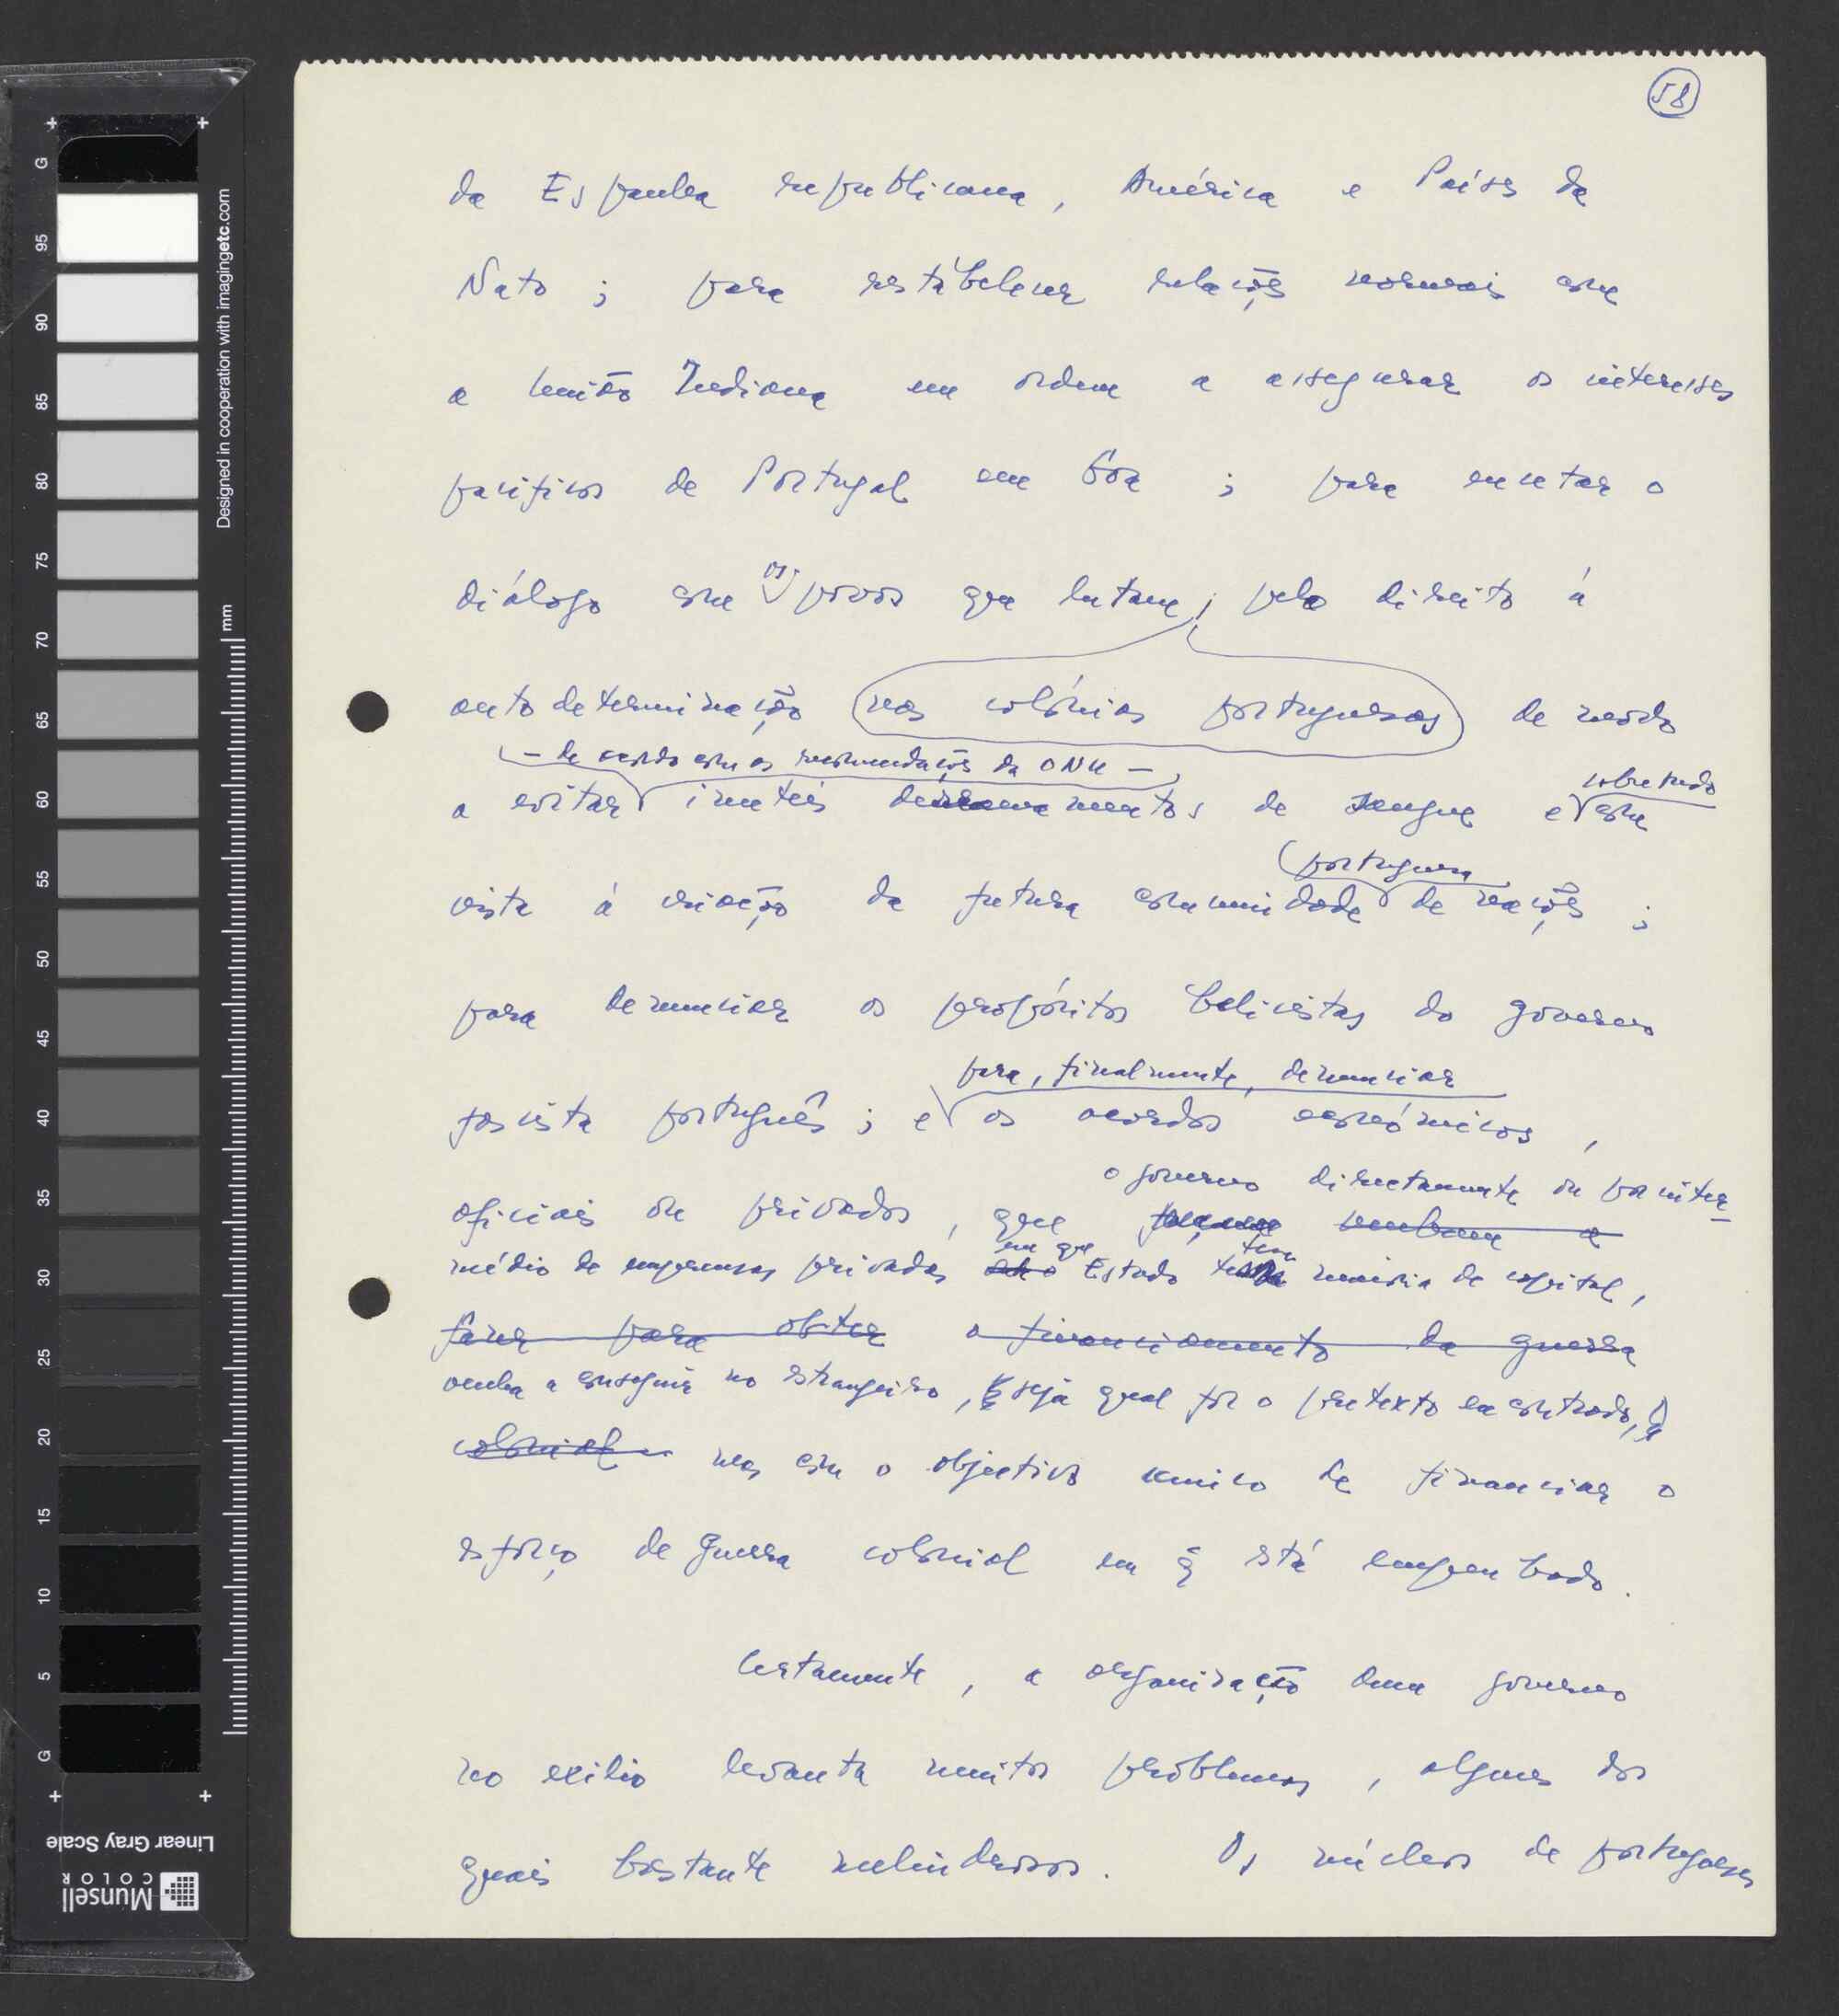 58
da Espanha republicana, América e Paíse da
Nato; para restabelecer relações normais com
a União Indiana em ordem a assegurar os interesses
pacificos de Portugal em Goa; para encetar o
diálogo com os povos que lutam, pelo direito á
autodeterminação nas colónias portuguesas de modo
— de acordo com as recomendações da ONU —
sobretudo
a evitar inuteis derramamentos de sangue e com
portuguesa
vista á criação da futura comunidade de nações;
para denunciar os propósitos belicistas do governo
para, finalmente, denunciar
fascista português; e os acordos económicos,
o governo directamente ou por inter-
oficiais ou privados, que venham a
em que
tem
médio de empresas privadas o Estado maioria de capital,
fazer para obter o financiamento da guerra
venha a conseguir no estrangeiro, seja qual for o pretexto encontrado,
colonial mas com o objectivo unico de financiar o
esforço de guerra colonial em q̃ está empenhado.
Certamente, a organização dum governo
no exilio levanta muitos problemas, alguns dos
quais bastante melindrosos. Os núcleos de portugueses
Designed in cooperation with imagingetc.com
mm
G 95 90 85 80 75 70 65 60 55 50 45 40 35 30 25 20 15 10 5 G
Linear Gray Scale
Munsell
COLOR